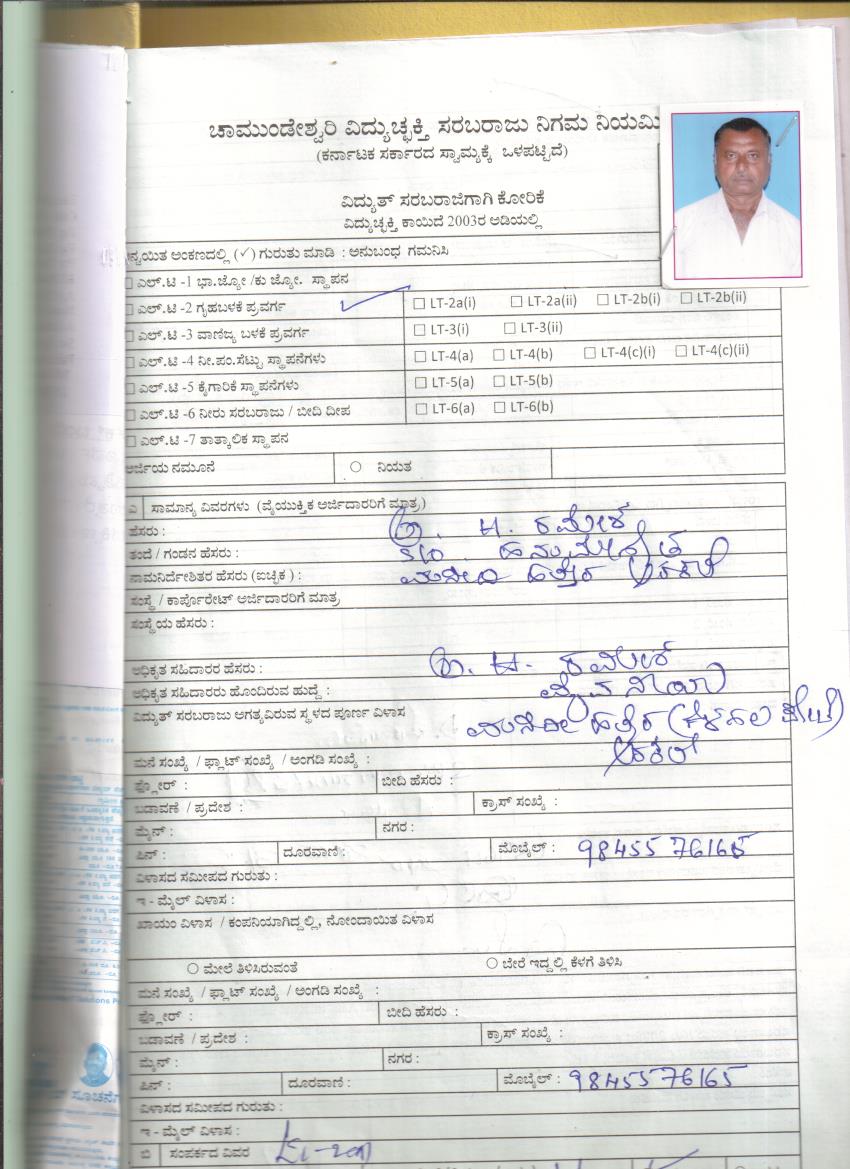 ಚಾಮುಂಡೇಶ್ವರಿ ವಿದ್ಯುಚ್ಛಕ್ತಿ ಸರಬರಾಜು ನಿಗಮ ನಿಯಮಿ
(ಕರ್ನಾಟಕ ಸರ್ಕಾರದ ಸ್ವಾಮ್ಯಕ್ಕೆ ಒಳಪಟ್ಟಿದೆ)
ವಿದ್ಯುತ್ ಸರಬರಾಜಿಗಾಗಿ ಕೋರಿಕೆ
ವಿದ್ಯುಚ್ಛಕ್ತಿ ಕಾಯಿದೆ 2003ರ ಅಡಿಯಲ್ಲಿ
ನ್ವಯಿತ ಅಂಕಣದಲ್ಲಿ (✓) ಗುರುತು ಮಾಡಿ : ಅನುಬಂಧ ಗಮನಿಸಿ
ಎಲ್.ಟಿ -1 ಭಾ.ಜ್ಯೋ /ಕು ಜ್ಯೋ. ಸ್ಥಾಪನ
ಎಲ್.ಟಿ -2 ಗೃಹಬಳಕೆ ಪ್ರವರ್ಗ LT-2a(i) LT-2a(ii) LT-2b(i) LT-2b(ii)
ಎಲ್.ಟಿ -3 ವಾಣಿಜ್ಯ ಬಳಕೆ ಪ್ರವರ್ಗ LT-3(i) LT-3(ii)
ಎಲ್.ಟಿ -4 ನೀ.ಪಂ.ಸೆಟ್ಟು ಸ್ಥಾಪನೆಗಳು LT-4(a) LT-4(b) LT-4(c)(i) LT-4(c)(ii)
ಎಲ್.ಟಿ -5 ಕೈಗಾರಿಕೆ ಸ್ಥಾಪನೆಗಳು LT-5(a) LT-5(b)
ಎಲ್.ಟಿ -6 ನೀರು ಸರಬರಾಜು / ಬೀದಿ ದೀಪ LT-6(a) LT-6(b)
ಎಲ್.ಟಿ -7 ತಾತ್ಕಾಲಿಕ ಸ್ಥಾಪನ
ಅರ್ಜಿಯ ನಮೂನೆ ನಿಯತ
ಎ ಸಾಮಾನ್ಯ ವಿವರಗಳು (ವೈಯುಕ್ತಿಕ ಅರ್ಜಿದಾರರಿಗೆ ಮಾತ್ರ)
ಹೆಸರು : H. ರಮೇಶ
ತಂದೆ / ಗಂಡನ ಹೆಸರು : S/o.
ನಾಮನಿರ್ದೇಶಿತರ ಹೆಸರು (ಐಚ್ಛಿಕ) :
ಸಂಸ್ಥೆ / ಕಾರ್ಪೊರೇಟ್ ಅರ್ಜಿದಾರರಿಗೆ ಮಾತ್ರ
ಸಂಸ್ಥೆಯ ಹೆಸರು :
ಅಧಿಕೃತ ಸಹಿದಾರರ ಹೆಸರು : H. ರಮೇಶ್
ಅಧಿಕೃತ ಸಹಿದಾರರು ಹೊಂದಿರುವ ಹುದ್ದೆ :
ವಿದ್ಯುತ್ ಸರಬರಾಜು ಅಗತ್ಯವಿರುವ ಸ್ಥಳದ ಪೂರ್ಣ ವಿಳಾಸ
ಮನೆ ಸಂಖ್ಯೆ / ಫ್ಲಾಟ್ ಸಂಖ್ಯೆ / ಅಂಗಡಿ ಸಂಖ್ಯೆ :
ಫ್ಲೋರ್ : ಬೀದಿ ಹೆಸರು :
ಬಡಾವಣೆ / ಪ್ರದೇಶ : ಕ್ರಾಸ್ ಸಂಖ್ಯೆ :
ಮೈನ್ : ನಗರ :
ಪಿನ್ : ದೂರವಾಣಿ : ಮೊಬೈಲ್ : 98455 76165
ವಿಳಾಸದ ಸಮೀಪದ ಗುರುತು :
ಇ - ಮೈಲ್ ವಿಳಾಸ :
ಖಾಯಂ ವಿಳಾಸ / ಕಂಪನಿಯಾಗಿದ್ದಲ್ಲಿ, ನೋಂದಾಯಿತ ವಿಳಾಸ
ಮೇಲೆ ತಿಳಿಸಿರುವಂತೆ ಬೇರೆ ಇದ್ದಲ್ಲಿ ಕೆಳಗೆ ತಿಳಿಸಿ
ಮನೆ ಸಂಖ್ಯೆ / ಫ್ಲಾಟ್ ಸಂಖ್ಯೆ / ಅಂಗಡಿ ಸಂಖ್ಯೆ :
ಫ್ಲೋರ್ : ಬೀದಿ ಹೆಸರು :
ಬಡಾವಣೆ / ಪ್ರದೇಶ : ಕ್ರಾಸ್ ಸಂಖ್ಯೆ :
ಮೈನ್ : ನಗರ :
ಪಿನ್ : ದೂರವಾಣಿ : ಮೊಬೈಲ್ : 9845576165
ವಿಳಾಸದ ಸಮೀಪದ ಗುರುತು :
ಇ - ಮೈಲ್ ವಿಳಾಸ :
ಬಿ ಸಂಪರ್ಕದ ವಿವರ